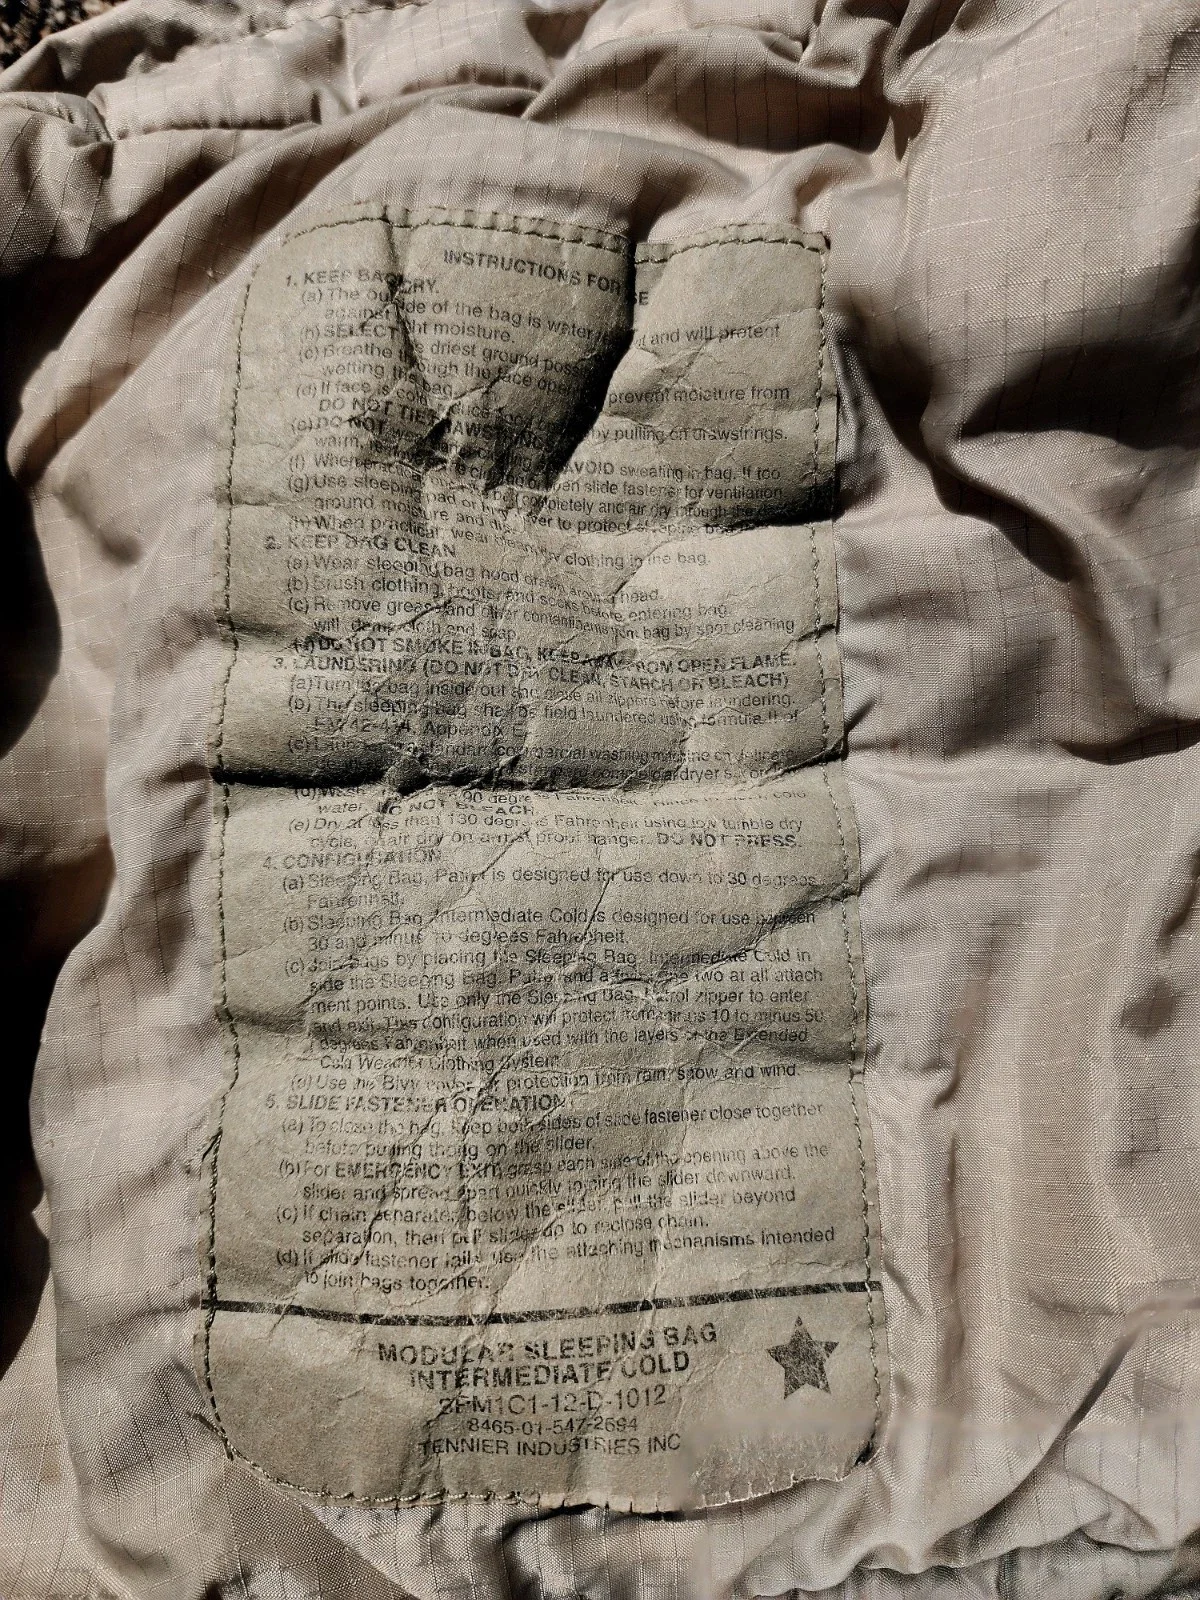 INSTRUCTIONS FOR SE
1. KEEP BAG DRY.
(a) The outside of the bag is water and will protent
against ht moisture.
(b) SELECT driest ground poss
(c) Breathe through the face open prevent moisture from
wetting the bag.
(d) If face is cold, by pulling on drawstrings.
DO NOT TIE DRAWSTRINGS
(e) DO NOT AVOID sweating in bag. If too
warm, open slide fastener for ventilation
(f) When completely and air dry through the
(g) Use sleeping pad or to protect
ground moisture and
(h) When practical, wear clothing in the bag.
2. KEEP BAG CLEAN
(a) Wear sleeping bag hood drawn around head.
(b) Brush clothing, boots and socks before entering bag.
(c) Remove grease and other contaminents from bag by spot cleaning
with damp cloth and soap.
(d) DO NOT SMOKE IN BAG, KEEP AWAY FROM OPEN FLAME.
3. LAUNDERING (DO NOT DRY CLEAN, STARCH OR BLEACH)
(a) Turn the bag inside out and close all zippers before laundering.
(b) The sleeping bag shall be field laundered using formula II of
Appendix E
(c) standard commercial washing machine on delicate
commercial dryer
(d) Wash 90 degrees Fahrenheit. cold
water. DO NOT BLEACH.
(e) Dry at less than 130 degrees Fahrenheit using low tumble dry
cycle, or air dry on a rust proof hanger. DO NOT PRESS.
4. CONFIGURATION
(a) Sleeping Bag, Patrol is designed for use down to 30 degrees
Fahrenheit.
(b) Sleeping Bag, Intermediate Cold is designed for use between
30 and minus 10 degrees Fahrenheit.
(c) Join bags by placing the Sleeping Bag, Intermediate Cold in
side the Sleeping Bag, Patrol and affixing the two at all attach
ment points. Use only the Sleeping Bag, Patrol zipper to enter
and exit. This configuration will protect from minus 10 to minus 50
degrees Fahrenheit when used with the layers of the Extended
Cold Weather Clothing System
(d) Use the Bivy cover for protection from rain, snow and wind.
5. SLIDE FASTENER OPERATION
(a) To close the bag, keep both sides of slide fastener close together
before pulling thong on the slider.
(b) For EMERGENCY EXIT, grasp each side of the opening above the
slider and spread apart quickly forcing the slider downward.
(c) If chain separates below the slider, pull the slider beyond
separation, then pull slider up to reclose chain.
(d) If slide fastener fails, use the attaching mechanisms intended
to join bags together.
MODULAR SLEEPING BAG
INTERMEDIATE COLD
SPM1C1-12-D-1012
8465-01-547-2694
TENNIER INDUSTRIES INC